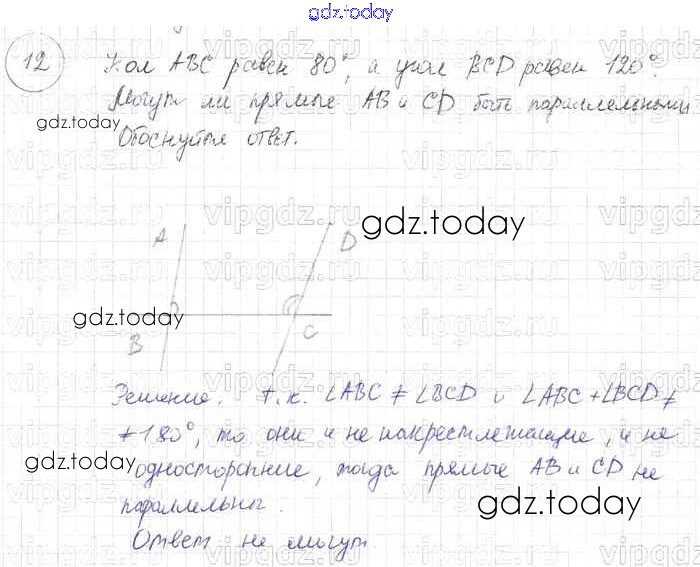 gdz.today
12 Угол ABC равен 80°, а угол BCD равен 120°.
Могут ли прямые AB и CD быть параллельными
gdz.today
Обоснуйте ответ.
A
D
gdz.today
gdz.today
B
C
Решение. т.к. ∠ABC ≠ ∠BCD и ∠ABC + ∠BCD ≠
≠ 180°, то они и не накрестлежащие, и не
gdz.today
односторонние, тогда прямые AB и CD не
параллельны.
gdz.today
Ответ не могут